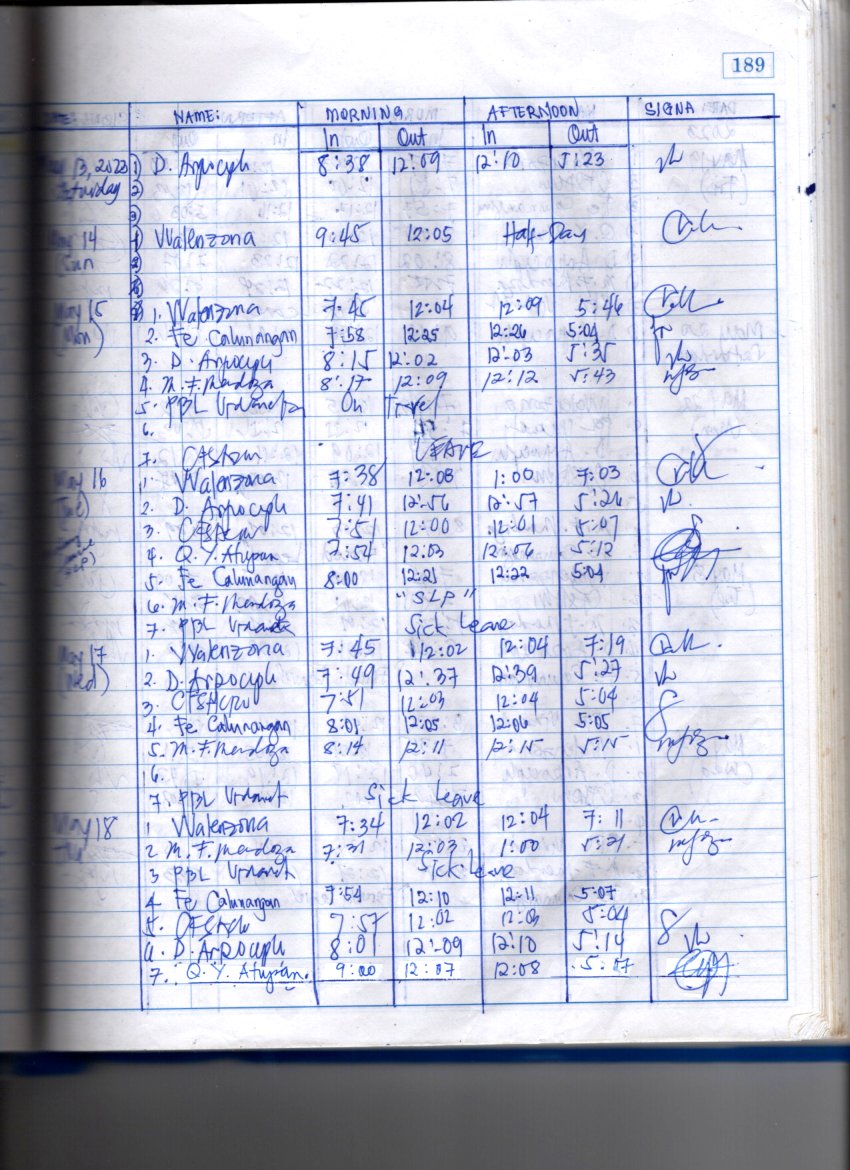 189
DATE: NAME: MORNING AFTERNOON SIGNA
In Out In Out
May 13, 2023 1) D. Arpocyh 8:38 12:09 12:10 5:23
Saturday 2)
3)
May 14 1) Walenzona 9:45 12:05 Half-Day
Sun 2)
3)
May 15 1. Walenzona 7:45 12:04 12:09 5:46
(Mon) 2. Fe Calunangan 7:58 12:25 12:26 5:04
3. D. Arpocyh 8:15 12:02 12:03 5:35
4. M. F. Mendoza 8:17 12:09 12:12 5:43
5. PBL On Travel
6.
7. LEAVE
May 16 1. Walenzona 7:38 12:08 1:00 7:03
(Tue) 2. D. Arpocyh 7:41 12:56 12:57 5:26
3. 7:51 12:00 12:01 5:07
4. Q. Y. Atupan 7:54 12:03 12:06 5:12
5. Fe Calunangan 8:00 12:21 12:22 5:04
6. M. F. Mendoza "SLP"
7. PBL Sick Leave
May 17 1. Walenzona 7:45 12:02 12:04 7:19
(Wed) 2. D. Arpocyh 7:49 12:37 12:39 5:27
3. 7:51 12:03 12:04 5:04
4. Fe Calunangan 8:01 12:05 12:06 5:05
5. M. F. Mendoza 8:14 12:11 12:15 5:15
6.
7. PBL Sick Leave
May 18 1 Walenzona 7:34 12:02 12:04 7:11
2. M. F. Mendoza 7:31 12:03 1:00 5:21
3 PBL Sick Leave
4 Fe Calunangan 7:54 12:10 12:11 5:07
5. 7:57 12:02 12:03 5:04
6. D. Arpocyh 8:01 12:09 12:10 5:14
7. Q. Y. Atupan. 9:00 12:07 12:08 5:07